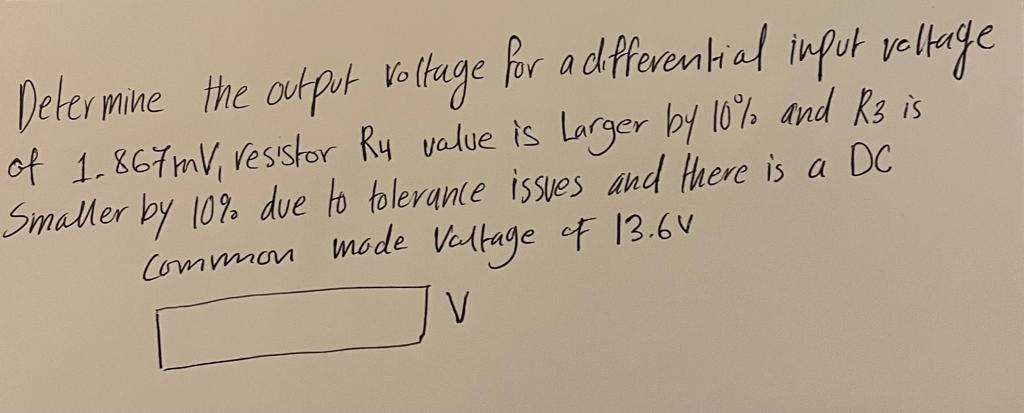 Determine the output voltage for a differential input voltage
of 1.867mV, resistor R4 value is Larger by 10% and R3 is
Smaller by 10% due to tolerance issues and there is a DC
Common mode Voltage of 13.6V
V